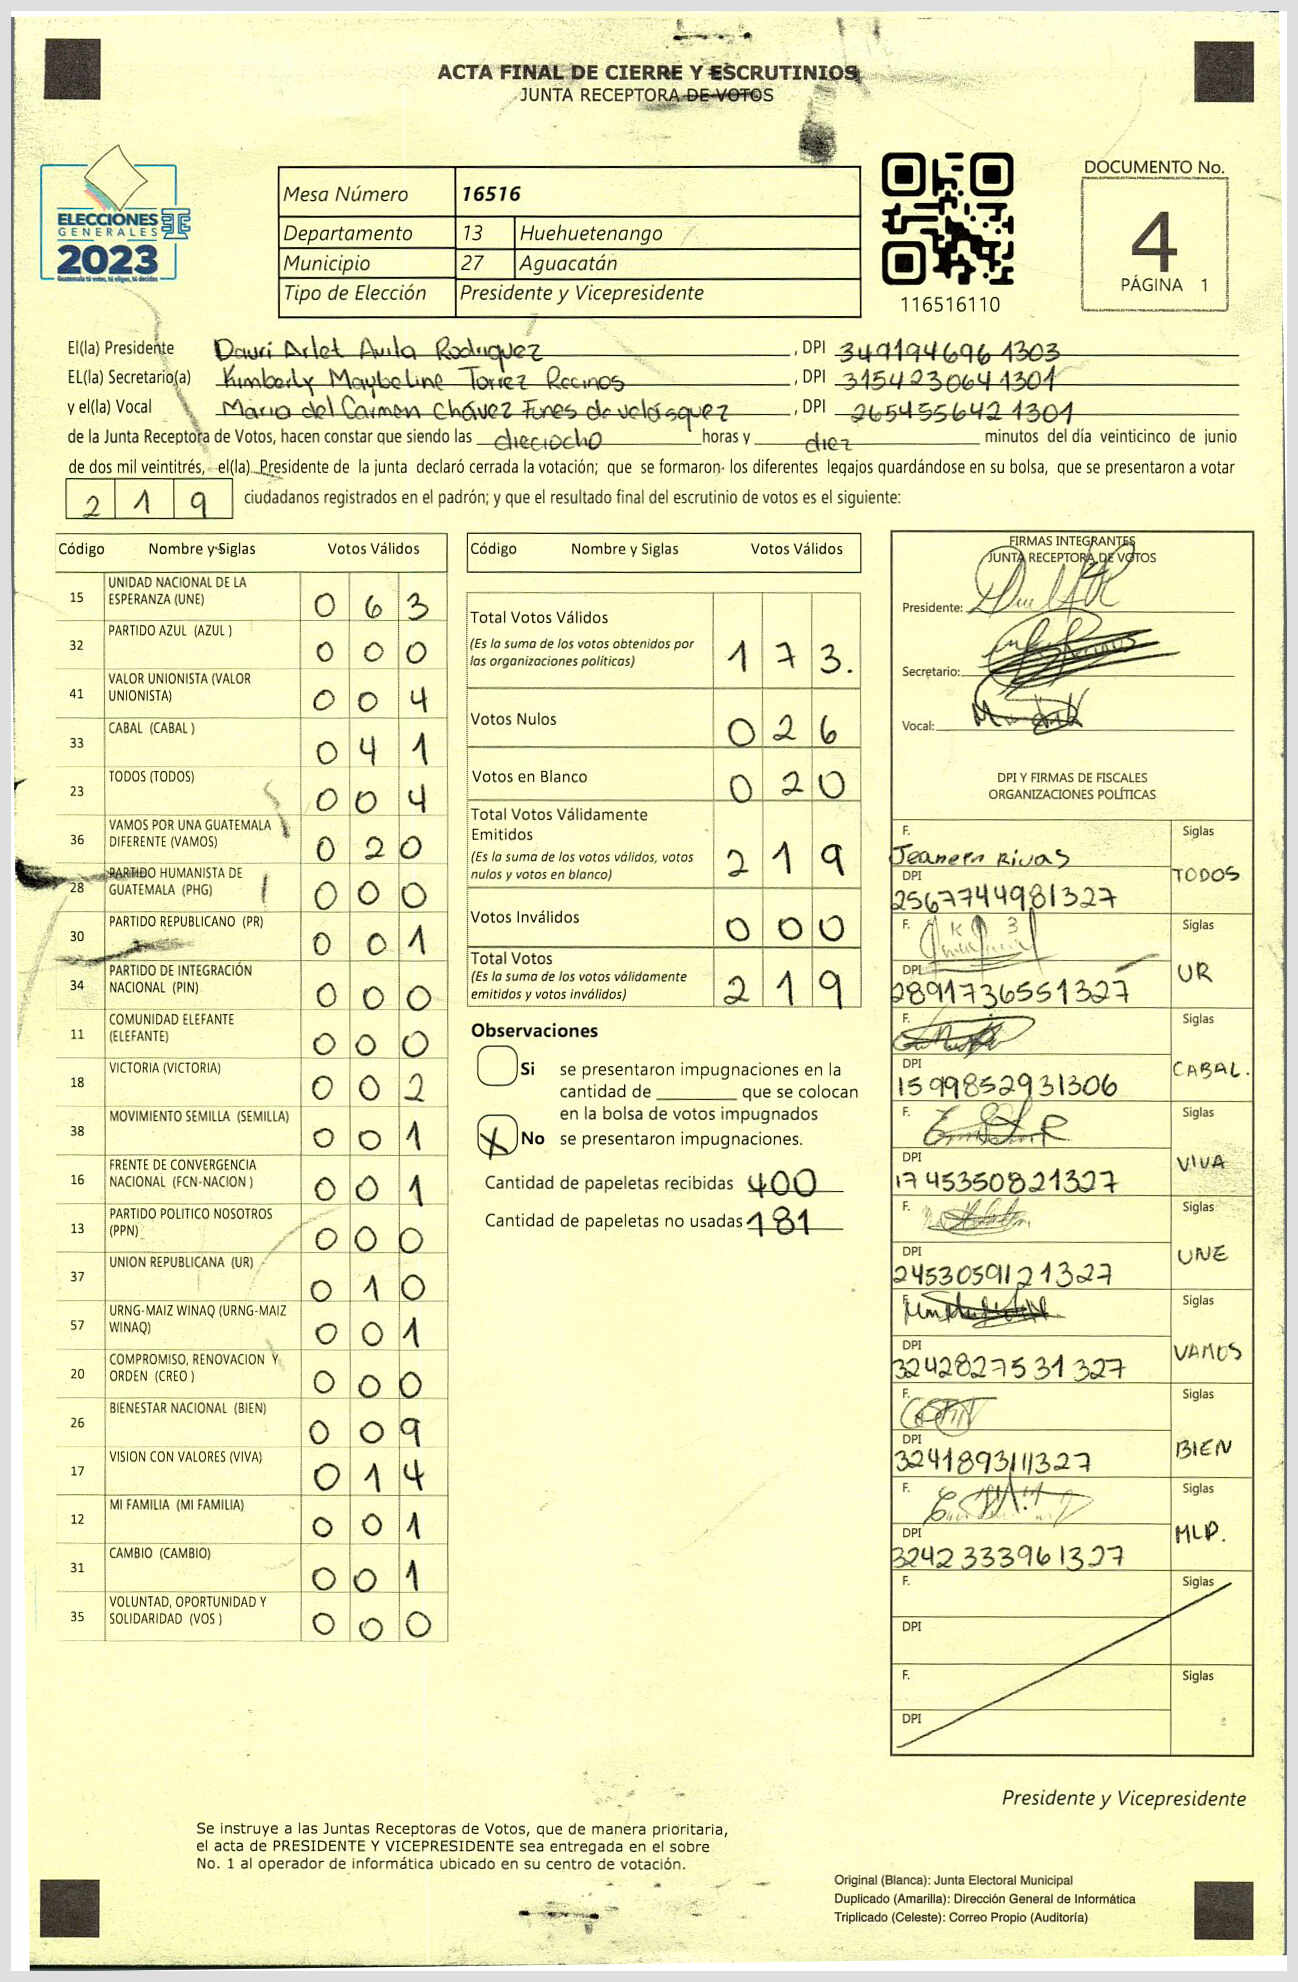 ACTA FINAL DE CIERRE Y ESCRUTINIOS
JUNTA RECEPTORA DE VOTOS
ELECCIONES TSE
GENERALES
2023
Guatemala tú votas, tú eliges, tú decides
Mesa Número 16516
Departamento 13 Huehuetenango
Municipio 27 Aguacatán
Tipo de Elección Presidente y Vicepresidente
116516110
DOCUMENTO No.
4
PÁGINA 1
El(la) Presidente Dauri Arlet Avila Rodriguez, DPI 349194696 1303
EL(la) Secretario(a) Kimberly Maybeline Torrez Recinos, DPI 315423064 1301
y el(la) Vocal Maria del Carmen Chávez Funes de velásquez, DPI 265455642 1301
de la Junta Receptora de Votos, hacen constar que siendo las dieciocho horas y diez minutos del día veinticinco de junio
de dos mil veintitrés, el(la) Presidente de la junta declaró cerrada la votación; que se formaron los diferentes legajos quardándose en su bolsa, que se presentaron a votar
2 1 9 ciudadanos registrados en el padrón; y que el resultado final del escrutinio de votos es el siguiente:
Código Nombre y Siglas Votos Válidos
15 UNIDAD NACIONAL DE LA
ESPERANZA (UNE) 0 6 3
32 PARTIDO AZUL (AZUL ) 0 0 0
41 VALOR UNIONISTA (VALOR
UNIONISTA) 0 0 4
33 CABAL (CABAL ) 0 4 1
23 TODOS (TODOS) 0 0 4
36 VAMOS POR UNA GUATEMALA
DIFERENTE (VAMOS) 0 2 0
28 PARTIDO HUMANISTA DE
GUATEMALA (PHG) 0 0 0
30 PARTIDO REPUBLICANO (PR) 0 0 1
34 PARTIDO DE INTEGRACIÓN
NACIONAL (PIN) 0 0 0
11 COMUNIDAD ELEFANTE
(ELEFANTE) 0 0 0
18 VICTORIA (VICTORIA) 0 0 2
38 MOVIMIENTO SEMILLA (SEMILLA) 0 0 1
16 FRENTE DE CONVERGENCIA
NACIONAL (FCN-NACION ) 0 0 1
13 PARTIDO POLITICO NOSOTROS
(PPN) 0 0 0
37 UNION REPUBLICANA (UR) 0 1 0
57 URNG-MAIZ WINAQ (URNG-MAIZ
WINAQ) 0 0 1
20 COMPROMISO, RENOVACION Y
ORDEN (CREO ) 0 0 0
26 BIENESTAR NACIONAL (BIEN) 0 0 9
17 VISION CON VALORES (VIVA) 0 1 4
12 MI FAMILIA (MI FAMILIA) 0 0 1
31 CAMBIO (CAMBIO) 0 0 1
35 VOLUNTAD, OPORTUNIDAD Y
SOLIDARIDAD (VOS ) 0 0 0
Código Nombre y Siglas Votos Válidos
Total Votos Válidos
(Es la suma de los votos obtenidos por
las organizaciones políticas) 1 7 3.
Votos Nulos 0 2 6
Votos en Blanco 0 2 0
Total Votos Válidamente
Emitidos
(Es la suma de los votos válidos, votos
nulos y votos en blanco) 2 1 9
Votos Inválidos 0 0 0
Total Votos
(Es la suma de los votos válidamente
emitidos y votos inválidos) 2 1 9
Observaciones
Si se presentaron impugnaciones en la
cantidad de ________ que se colocan
en la bolsa de votos impugnados
X No se presentaron impugnaciones.
Cantidad de papeletas recibidas 400
Cantidad de papeletas no usadas 181
FIRMAS INTEGRANTES
JUNTA RECEPTORA DE VOTOS
Presidente:
Secretario:
Vocal:
DPI Y FIRMAS DE FISCALES
ORGANIZACIONES POLÍTICAS
F. Siglas
Rivas
DPI TODOS
2567744981327
F. Siglas
DPI UR
2891736551327
F. Siglas
DPI CABAL.
1599852931306
F. Siglas
DPI VIVA
1745350821327
F. Siglas
DPI UNE
2453059121327
F. Siglas
DPI VAMOS
3242827531327
F. Siglas
DPI BIEN
3241893111327
F. Siglas
DPI MLP.
3242333961327
F. Siglas
DPI
F. Siglas
DPI
Presidente y Vicepresidente
Se instruye a las Juntas Receptoras de Votos, que de manera prioritaria,
el acta de PRESIDENTE Y VICEPRESIDENTE sea entregada en el sobre
No. 1 al operador de informática ubicado en su centro de votación.
Original (Blanca): Junta Electoral Municipal
Duplicado (Amarilla): Dirección General de Informática
Triplicado (Celeste): Correo Propio (Auditoría)